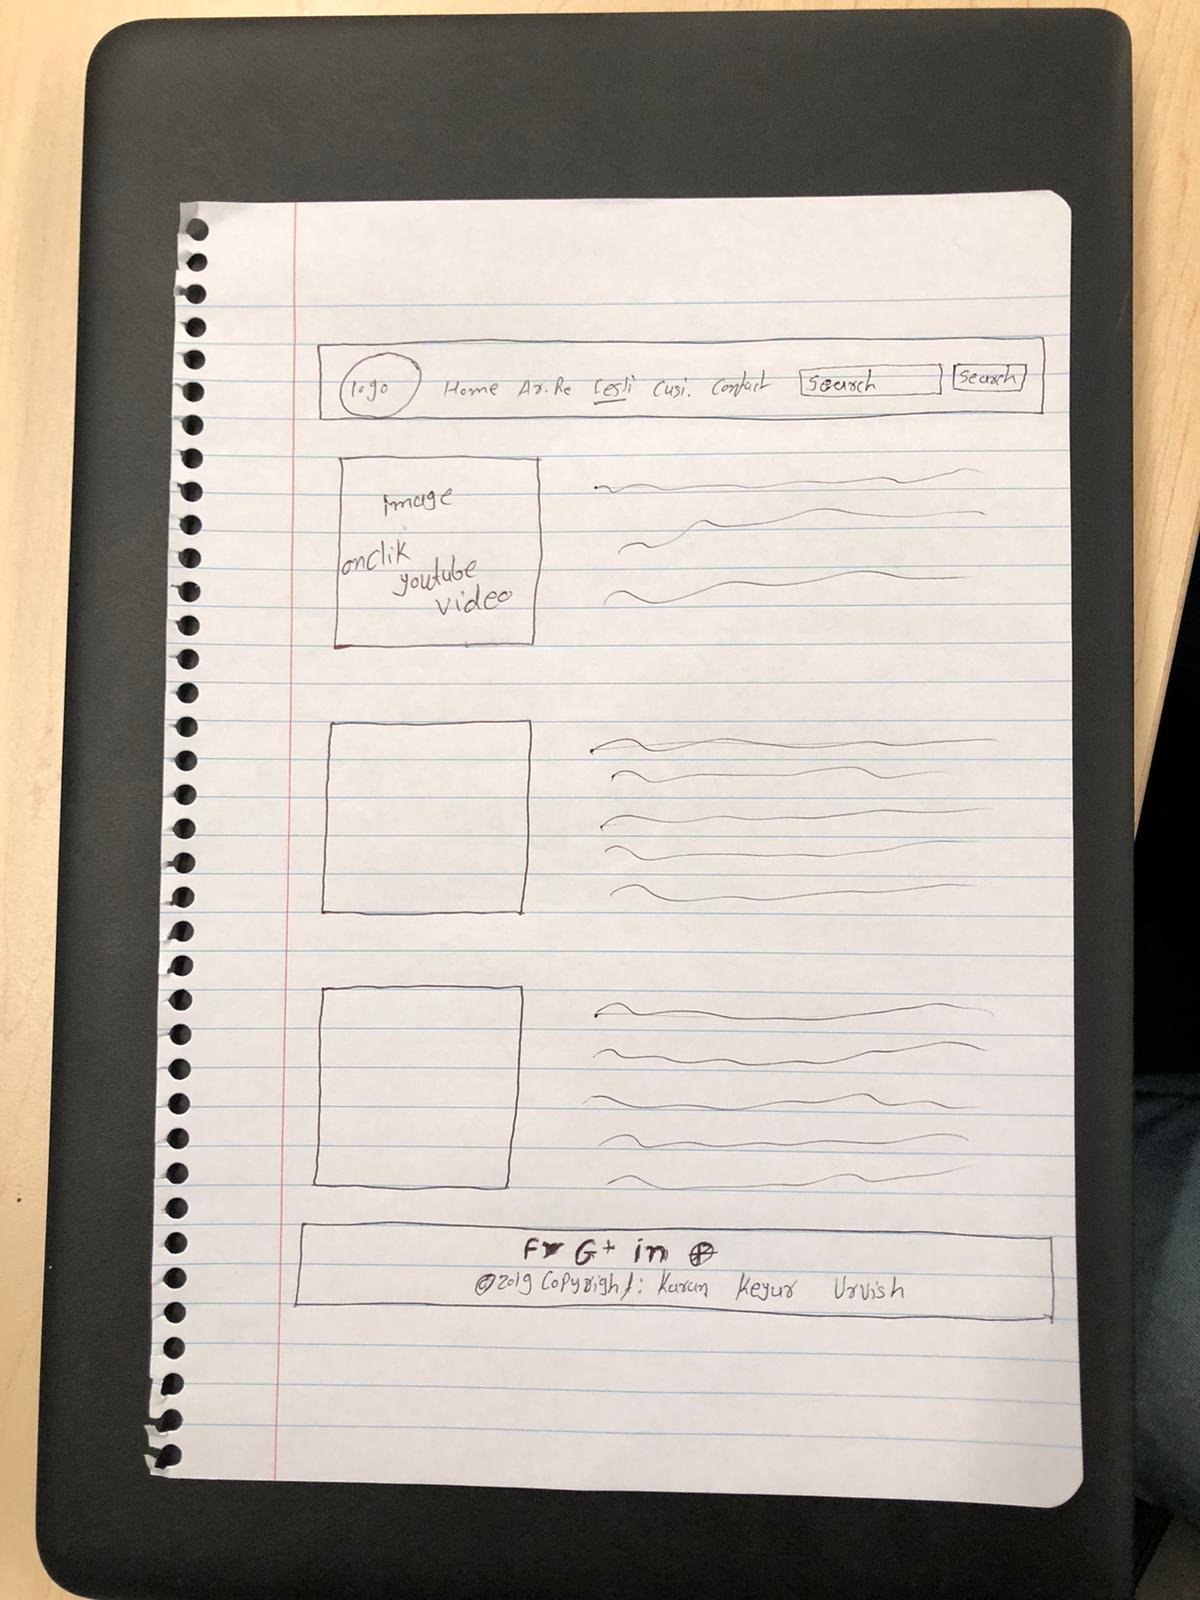 logo Home Ar.Re Cesli Cusi. Contact Search Search
image
onclik
youtube
video
G+ in
©2019 Copyright: Karan Keyur Urvish